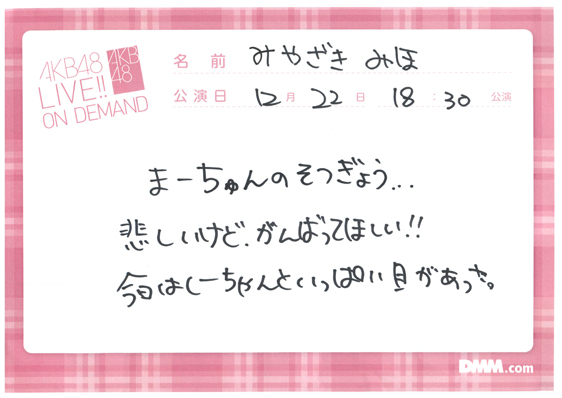 AKB48
LIVE!!
ON DEMAND
AKB
48
名前 みやざき みほ
公演日 12月 22日 18:30 公演
まーちゅんのそつぎょう...
悲しいけど、がんばってほしい!!
今日はしーちゃんといっぱい目があった。
DMM.com